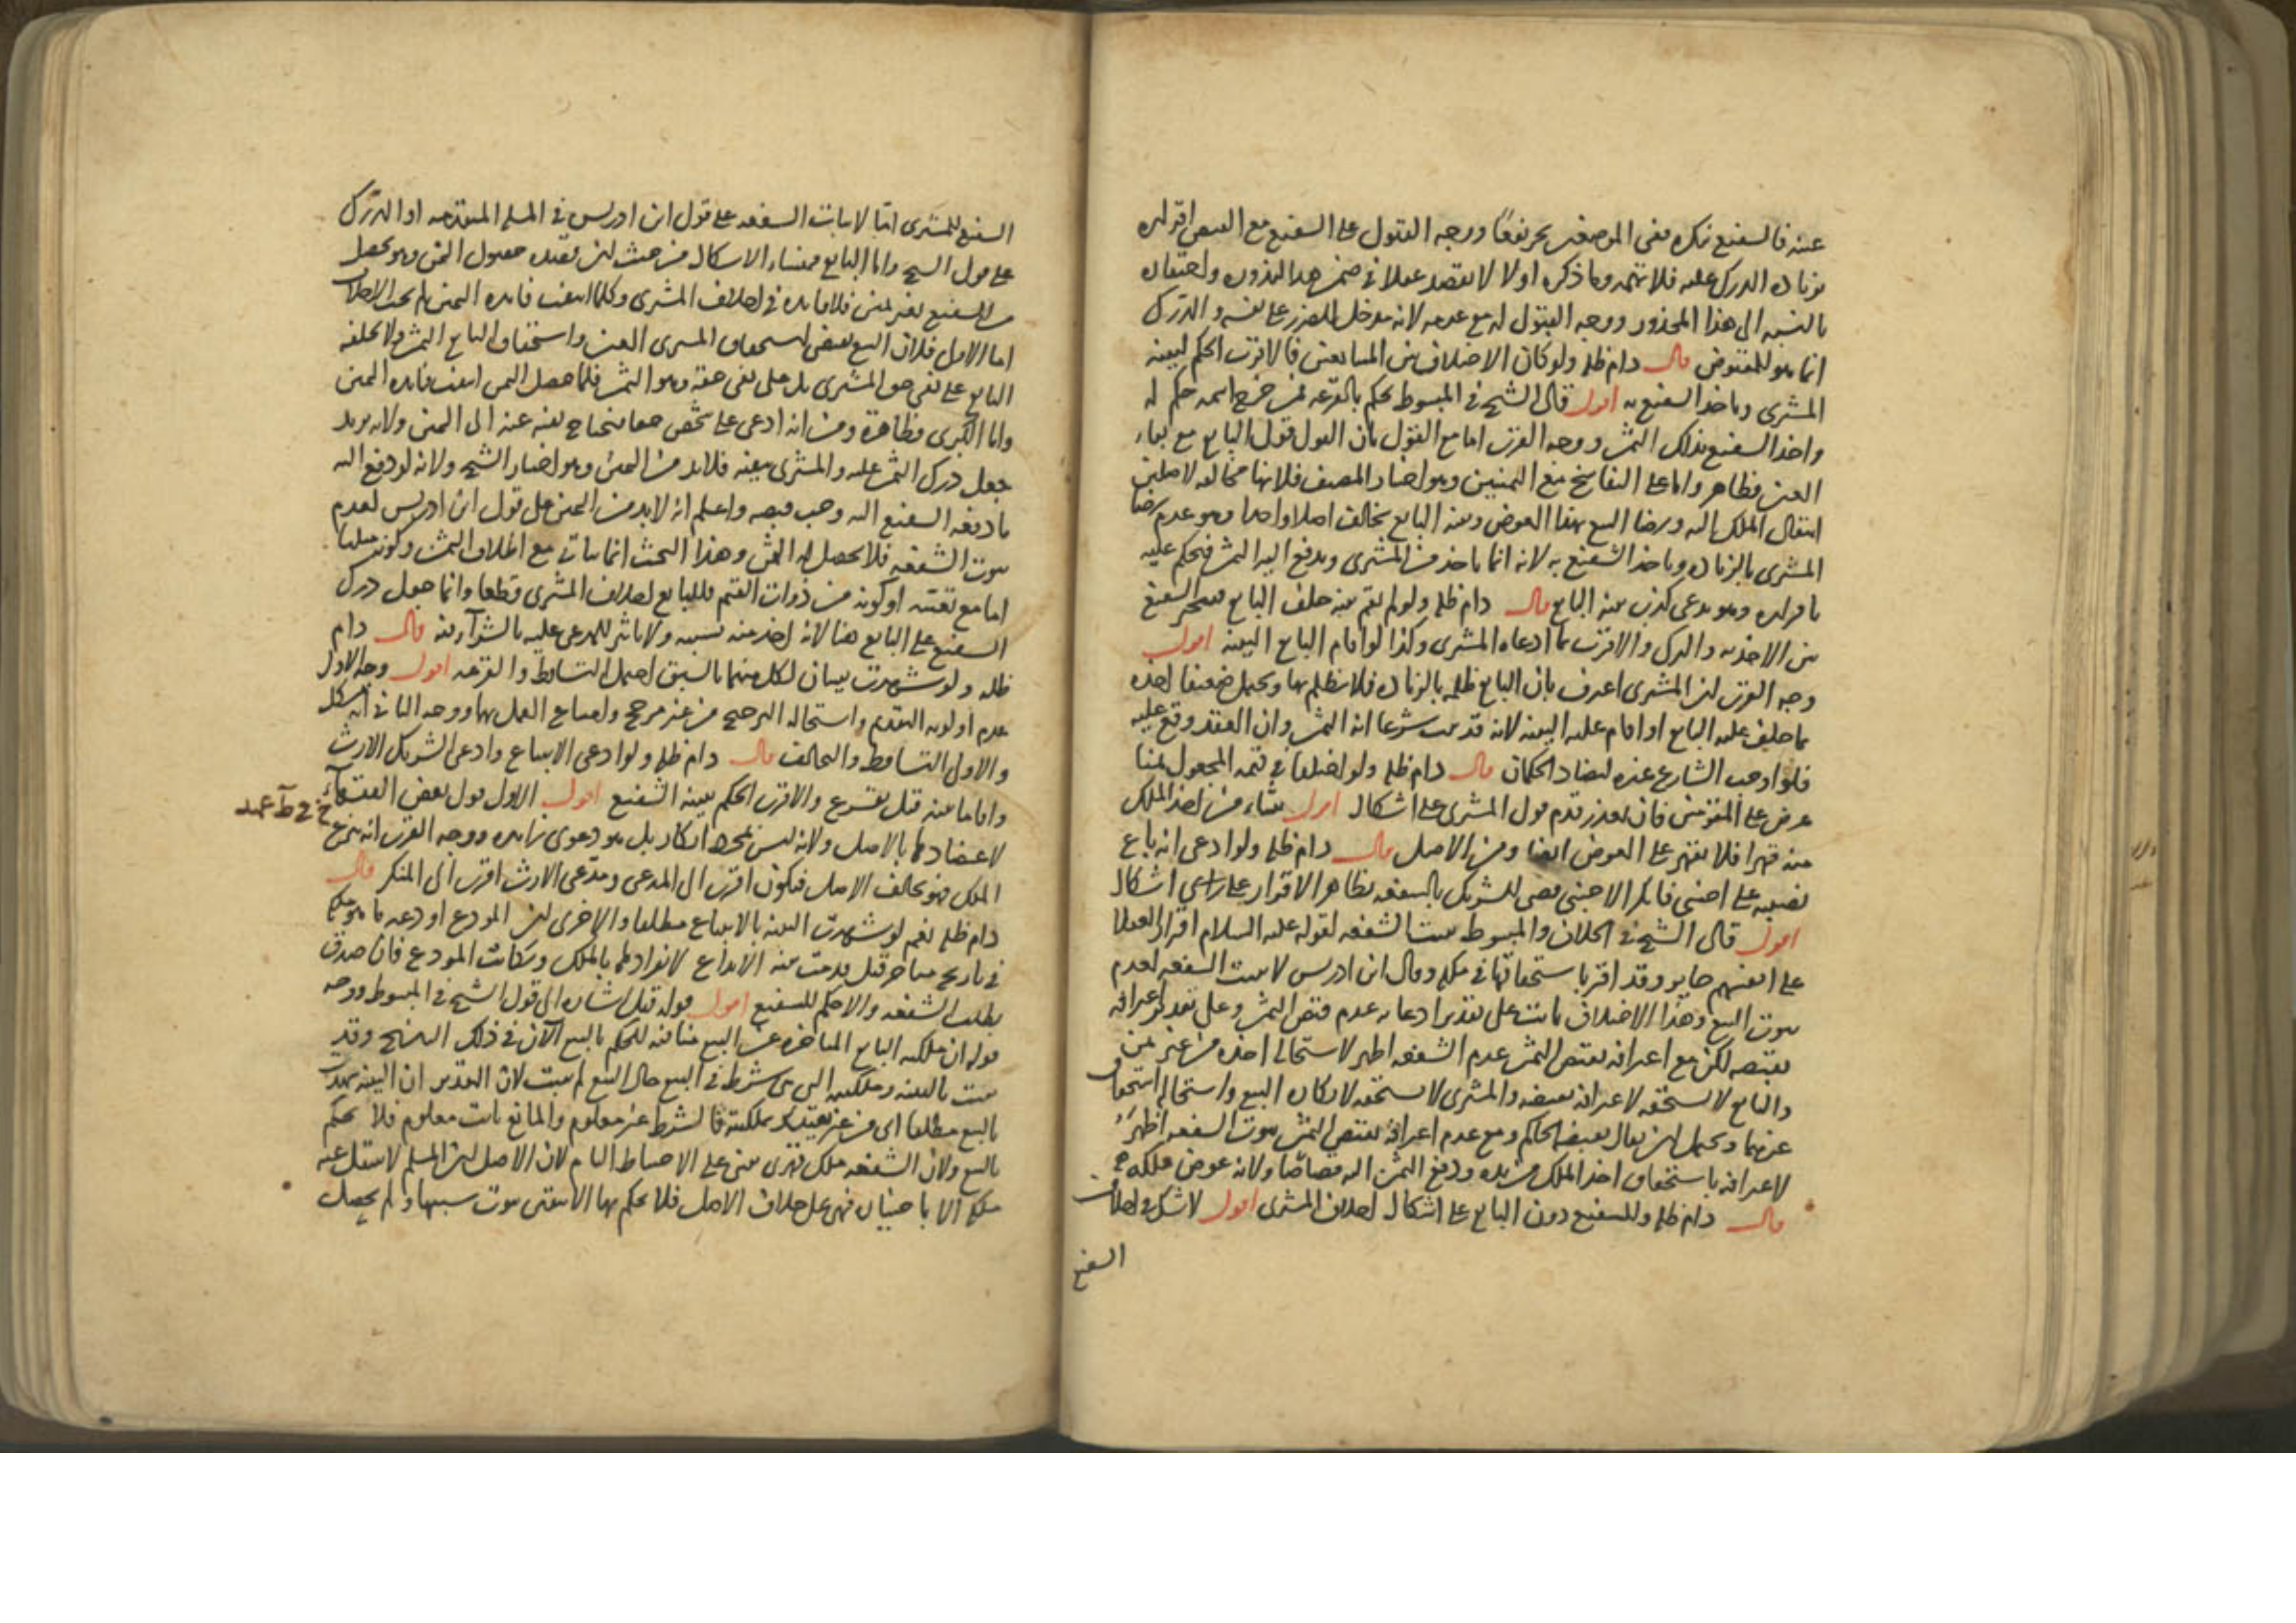 عنه فالشفيع نكره ففى الموضعين ووجه القبول على الشفيع مع النقص اقراره
بزيادة الدرك عليه فلا تهمة وما ذكره اولا لا يقصد عقلا فى ضمن هذا المحذور
بالنسبة الى هذا المحذور ووجه القبول له مع عدمه لانه مدخل للضرر على نفسه والدرك
انما هو للمقبوض قال دام ظله ولو كان الاختلاف من المتبايعين فالاقرب الحكم ببينة
المشترى وياخذ الشفيع به اقول قال الشيخ فى المبسوط يحكم بالقرعة فمن خرج اسمه حكم له
واخذ الشفيع بذلك الثمن ووجه القرب اما مع القول بان القول قول البايع مع بقاء
العين فظاهر واما على التفاسخ مع اليمينين وهو اختيار المصنف فلانها مخالفة لاصلين
انتقال الملك اليه ورضا البيع بهذا العوض وبينة البايع تخالف اصلا واحدا وهو عدم رضا
المشترى بالزيادة وياخذ الشفيع به لانه انما ياخذ من المشترى ويدفع اليه الثمن فيحكم عليه
باقراره وهو يدعى كذب بينة البايع قال دام ظله ولو لم يقم بينة حلف البايع فيتخير الشفيع
بين الاخذ به والترك والاقرب بما ادعاه المشترى وكذا لو اقام البايع البينة اقول
وجه القرب ان المشترى اعترف بان البايع ظلمه بالزيادة فلا يظلم بها ويحتمل ضعيفا اخذه
بما حلف عليه البايع او اقام عليه البينة لانه قد ثبت شرعا انه الثمن وان العقد وقع عليه
فلو اوجب الشارع غيره لتضاد الحكمان قال دام ظله ولو اختلفا فى قيمة المجعول ثمنا
عرض على المقومين فان تعذر قدم قول المشترى على اشكال اقول ينشاء من اخذ الملك
منه قهرا فلا يقهر على العوض ايضا ومن الاصل قال دام ظله ولو ادعى انه باع
نصيبه على اجنبى فانكر الاجنبى قضى للشريك بالشفعة بظاهر الاقرار على راى اشكال
اقول قال الشيخ فى الخلاف والمبسوط يثبت الشفعة لقوله عليه السلام اقرار العقلا
على انفسهم جايز وقد اقر باستحقاقها فى ملكه وقال ابن ادريس لا يثبت الشفعة لعدم
ثبوت البيع وهذا الاختلاف يات على تقدير ادعائه عدم قبض الثمن وعلى تقدير اعترافه
بقبضه لكن مع اعترافه بقبض الثمن عدم الشفعة اظهر لاستحالة اخذه من غير ثمن
والبايع لا يستحقه لاعترافه بقبضه والمشترى لا يستحقه لانكاره البيع واستحالة استحقاق
غيرهما ويحتمل ان يقال يقبضه الحاكم ومع عدم اعترافه بقبض الثمن ثبوت الشفعة اظهر
لاعترافه باستحقاق اخذ الملك من يده ودفع الثمن اليه قصاصا ولانه عوض ملكه
قال دام ظله وللشفيع دون البايع على اشكال احلاف المشترى اقول لا شك فى احلاف
الشفيع
الشفيع للمشترى اما لاثبات الشفعة على قول ابن ادريس فى المسئلة المتقدمة او الدرك
على قول الشيخ واما البايع فمنشاء الاشكال من حيث ان قصده حصول الثمن وهو يحصل
من الشفيع بغير يمين فلا فايدة فى احلاف المشترى وكلما انتفت فايدة اليمين لم يجب الاحلاف
اما الاول فلان البيع يقتضى استحقاق المشترى العين واستحقاق البايع الثمن ولا يحلفه
البايع على نفى حق المشترى بل على نفى حقه وهو الثمن فلما حصل الثمن انتفت فايدة اليمين
واما الكبرى فظاهرة ومن انه ادعى على شخص حقا فيحتاج نفيه عنه الى اليمين ولانه يريد
جعل درك الثمن عليه والمشترى ينفيه فلابد من اليمين وهو اختيار الشيخ ولانه لو دفع اليه
ما دفعه الشفيع اليه وجب قبضه واعلم انه لابد من اليمين على قول ابن ادريس لعدم
ثبوت الشفعة فلا يحصل له الثمن وهذا البحث انما يتاتى مع اطلاق الثمن وكونه مثليا
اما مع تعينه او كونه من ذوات القيم فللبايع احلاف المشترى قطعا وانما جعل درك
الشفيع على البايع هنا لانه اخذ منه بسببه ولا تاثير للمدعى عليه بالشرآء منه قال دام
ظله ولو شهدت بينتان لكل منهما بالسبق احتمل التساقط والقرعة اقول وجه الاول
عدم اولوية التقديم واستحالة الترجيح من غير مرجح وامتناع العمل بهما ووجه الثانى انه مشكل
والاولى التساقط والتحالف قال دام ظله ولو ادعى الابتياع وادعى الشريك الارث
واقاما بينة قيل يقرع والاقرب الحكم ببينة الشفيع اقول الاول قول بعض الفقهآء
لاعتضادهما بالاصل ولانه ليس بمجرد انكار بل هو دعوى زايدة ووجه القرب انه ينزع
الملك فهو يخالف الاصل فيكون اقرب الى المدعى ومدعى الارث اقرب الى المنكر قال
دام ظله نعم لو شهدت البينة بالابتياع مطلقا والاخرى ان المودع اودعه ما هو ملكه
فى تاريخ متاخر قيل قدمت بينة الايداع لانفرادها بالملك ويكاتب المودع فان صدق
بطلت الشفعة والا حكم للشفيع اقول قوله قيل اشارة الى قول الشيخ فى المبسوط ووجه
قوله ان ملكية البايع المتاخرة عن البيع منافية للحكم بالبيع الآن فى ذلك التاريخ وقد
ثبت بالبينة وملكيته التى هى شرط فى البيع حال البيع لم يثبت لان التقدير ان البينة شهدت
بالبيع مطلقا اى من غير تقييد بملكيته فالشرط غير معلوم والمانع ثابت معلوم فلا يحكم
بالبيع ولان الشفعة ملك قهرى مبنى على الاحتياط التام لان الاصل ان المسلم لا ينتقل عنه
ملكه الا باختياره فهى على خلاف الاصل فلا يحكم بها الا بيقين ثبوت سببها ولم يحصل